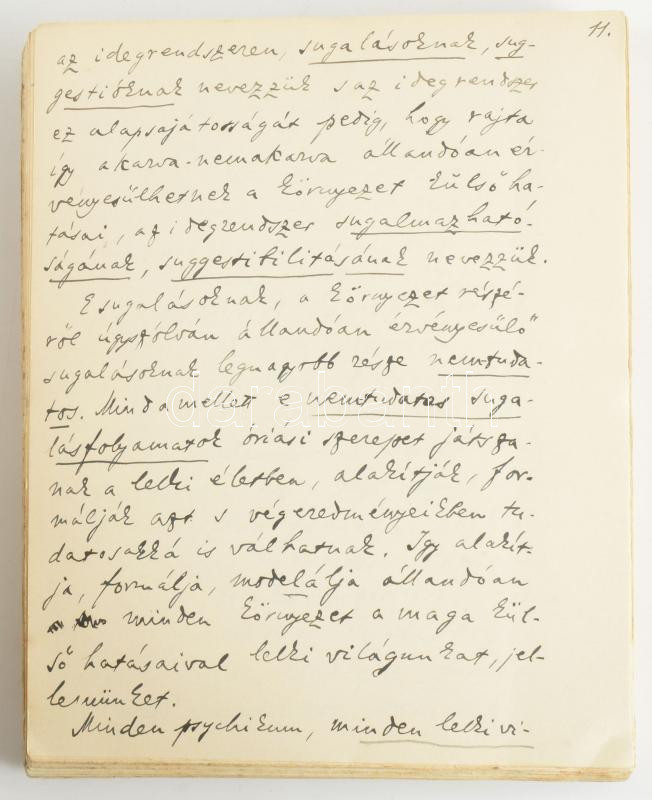 11.
az idegrendszeren, sugalásoknak, sug-
gestióknak nevezzük s az idegrendszer
ez alapsajátosságát pedig, hogy rajta
így akarva-nemakarva állandóan ér-
vényesülhetnek a környezet külső ha-
tásai, az idegrendszer sugalmazható-
ságának, suggestibilitásának nevezzük.
E sugalásoknak, a környezet részé-
ről úgyszólván állandóan érvényesülő
sugalásoknak legnagyobb része nemtuda-
tos. Mindamellett e nemtudatos suga-
lásfolyamatok óriási szerepet játsza-
nak a lelki életben, alakítják, for-
málják azt s végeredményeikben tu-
datosakká is válhatnak. Így alakít-
ja, formálja, modelálja állandóan
minden környezet a maga kül-
ső hatásaival lelki világunkat, jel-
lemünket.
Minden psychikum, minden lelki vi-
darabanth